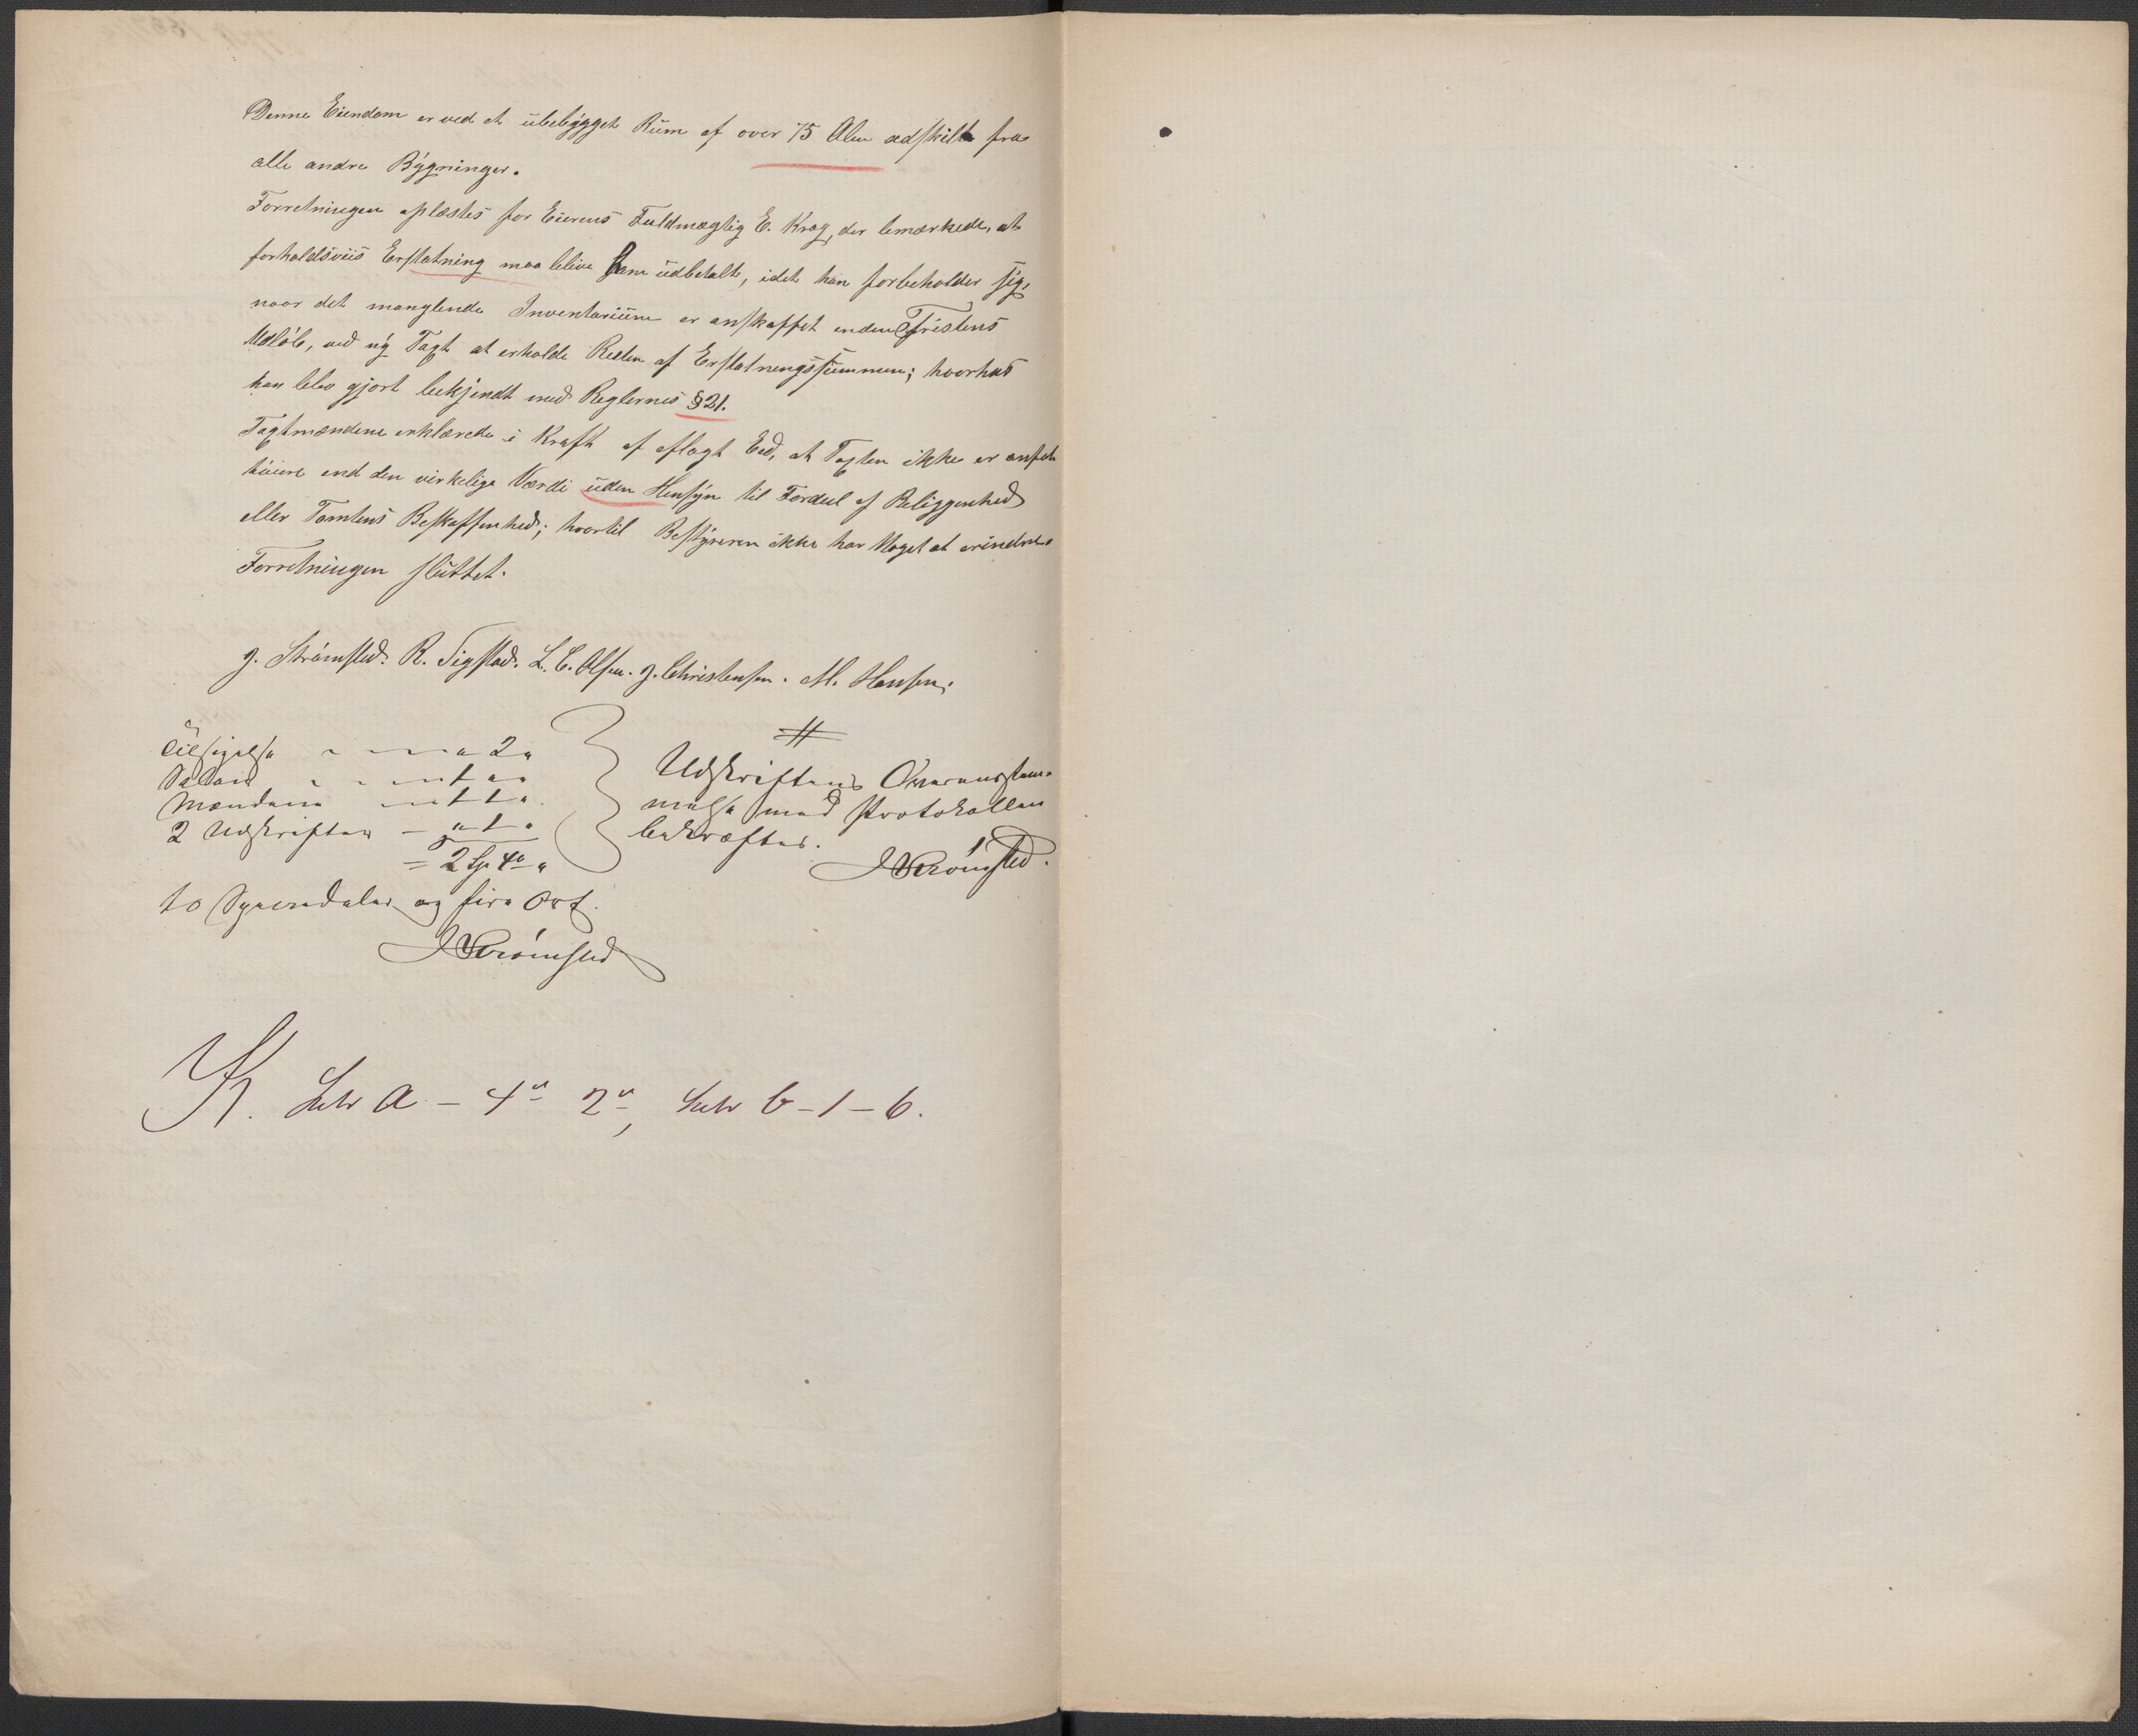 Denne Eiendom er ved et ubebygget Rum af over 75 Alen adskilt fra
alle andre Bygninger.
Forretningen oplæstes for Eierens Fuldmægtig E. Krog, der bemærkede, at
forholdsviis Erstatning maa blive ham udbetalt, idet han forbeholder sig,
naar det manglende Inventarium er anskaffet inden Fristens
Udløb, ved ny Taxt at erholde Resten af Erstatningssummen; hvorhos
han blev gjort bekjendt med Reglernes § 21.
Taxtmændene erklærede i Kraft af aflagt Eed, at Taxten ikke er ansat
høiere end den virkelige Værdi uden Hensyn til Fordeel af Beliggenhed
eller Tomtens Beskaffenhed; hvortil Bestyreren ikke har Noget at erindre.
Forretningen sluttet.
J. Strømsted. R. Sigstad. L. C. Olsen. J. Christensen. M. Hansen.
Tilsigelse 2
Mændene
2 Udskrifter 1
= 2 Sp 4
to Speciedaler og fire Ort.
JStrømsted
Udskriftens Overensstem-
melse med Protokollen
bekræftes.
JStrømsted.
K. Litr a - 4 2, Litr b - 1 - 6.